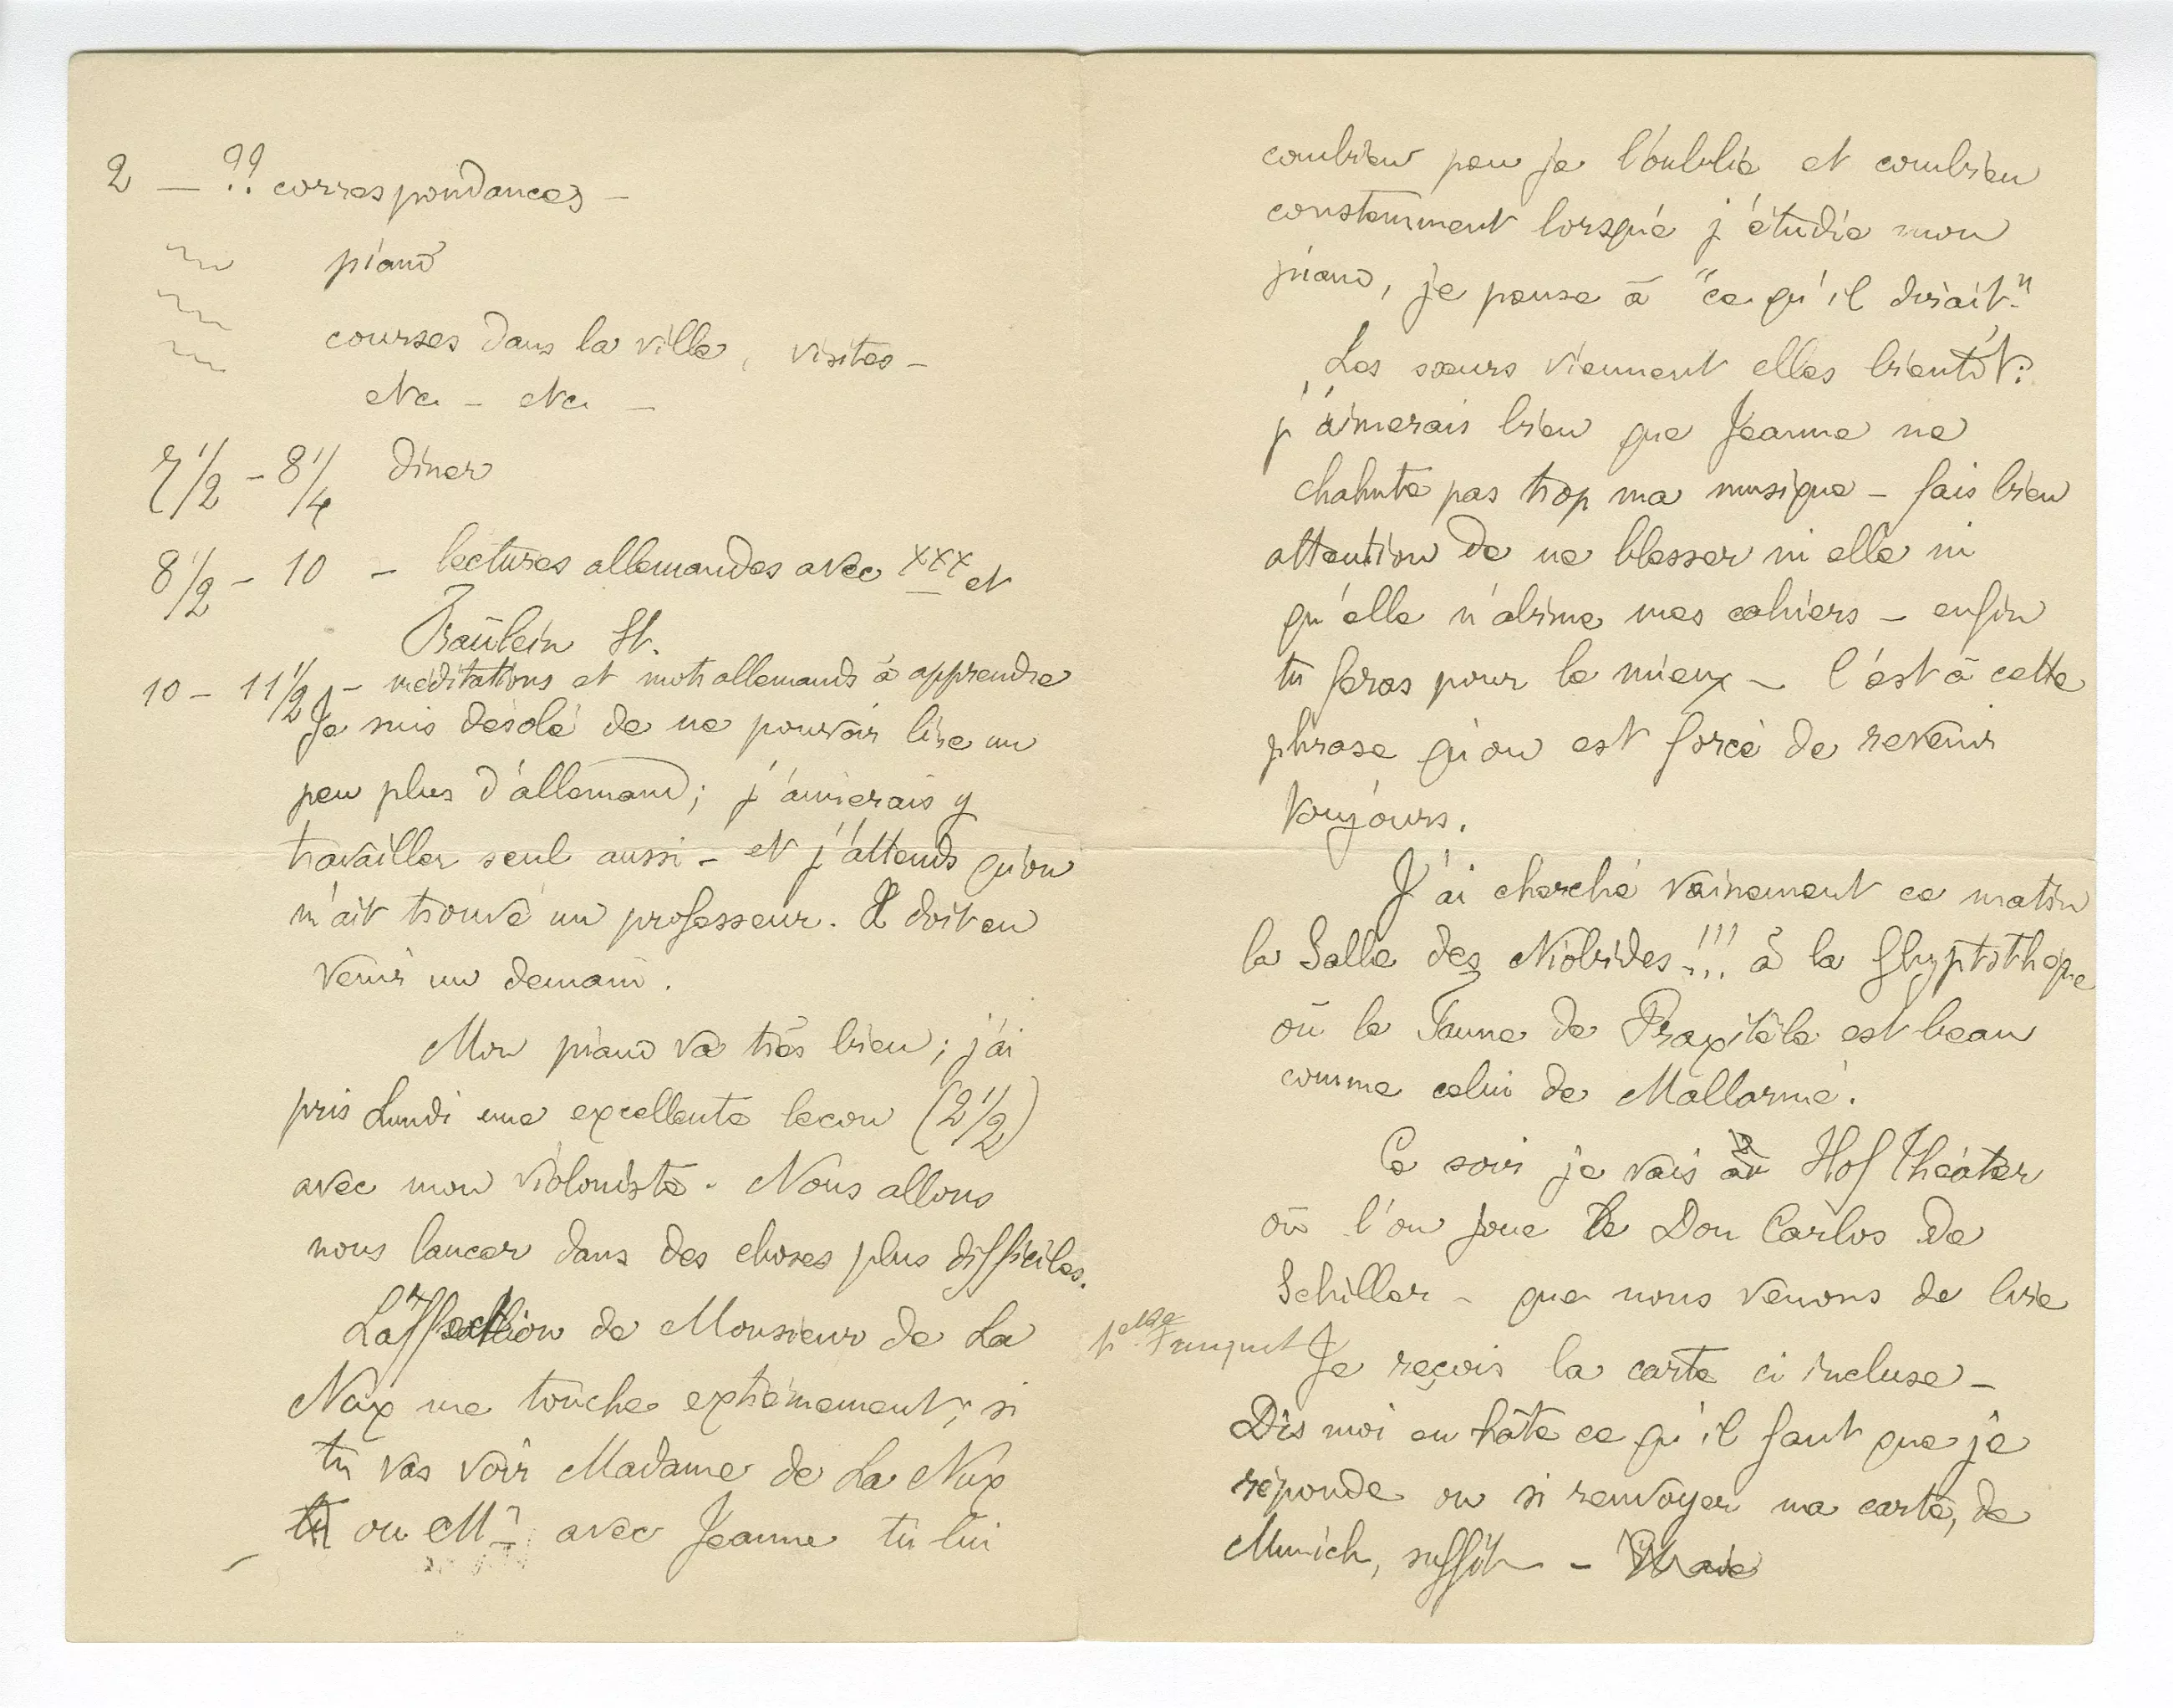 2 — ?? correspondances —
piano
courses dans la ville, visites —
etc. — etc. —
7 1/2 - 8 1/4 dîner
8 1/2 - 10 — lectures allemandes avec xxx et
Fraülein St.
10 — 11 1/2 — méditations et mots allemands à apprendre
Je suis désolé de ne pouvoir lire un
peu plus d'allemand ; j'aimerais y
travailler seul aussi — et j'attends qu'on
m'ait trouvé un professeur. Il doit en
venir un demain.
Mon piano va très bien ; j'ai
pris Lundi une excellente leçon (2 1/2)
avec mon violoniste. Nous allons
nous lancer dans des choses plus difficiles.
L'affection de Monsieur de La
Nux me touche extrêmement ; si
tu vas voir Madame de La Nux
ou Mr avec Jeanne tu lui
combien peu je l'oublie et combien
constamment lorsque j'étudie mon
piano, je pense à "ce qu'il dirait."
Les sœurs viennent elles bientôt ?
j'aimerais bien que Jeanne ne
chahute pas trop ma musique — fais bien
attention de ne blesser ni elle ni
qu'elle n'abime mes cahiers — enfin
tu feras pour le mieux — c'est à cette
phrase qu'on est forcé de revenir
toujours.
J'ai cherché vainement ce matin
la Salle des Niobides !!! à la Glyptothèque
où le Faune de Praxitèle est beau
comme celui de Mallarmé.
Ce soir je vais au Hof Théâter
où l'on joue le Don Carlos de
Schiller — que nous venons de lire
Je reçois la carte ci incluse —
Dis moi en hâte ce qu'il faut que je
réponde ou si renvoyer ma carte, de
Munich, suffit —